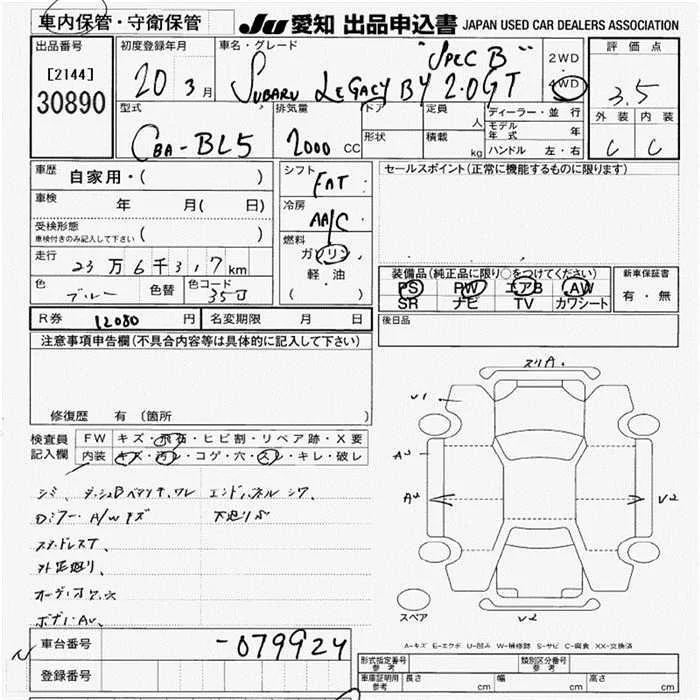 車内保管・守衛保管
JU 愛知 出品申込書 JAPAN USED CAR DEALERS ASSOCIATION
出品番号
[2144]
30890
初度登録年月
20 3月
車名・グレード
"SPEC B"
SUBARU LEGACY B4 2.0GT
2WD
4WD
評価点
3.5
外装 内装
C C
型式
CBA-BL5
排気量
2000 CC
ドア
形状
定員
人
積載
kg
ディーラー・並行
モデル年式 年
ハンドル 左・右
車歴
自家用・( )
車検
年 月( 日)
受検形態
車検付きのみ記入して下さい ( )
走行
23万6千317km
色
ブルー
色替
色コード
35J
シフト
FAT
冷房
AAC
燃料
ガソリン
軽・油
( )
セールスポイント(正常に機能するものに限ります)
装備品(純正品に限り○をつけてください)
PS PW エアB AW
SR ナビ TV カワシート
新車保証書
有・無
R券 12080 円
名変期限 月 日
後日品
注意事項申告欄(不具合内容等は具体的に記入して下さい)
修復歴 有(箇所 )
検査員
記入欄
FW キズ・飛石・ヒビ割・リペア跡・X要
内装 キズ・汚レ・コゲ・穴・スレ・キレ・破レ
シミ、ダッシュB
エンドパネルシワ、
Dミラー・A/Wキズ
下廻りサビ
スタッドレスT、
外品廻り、
ボディAU、
スリA・
U1
AU
AU
U2
U2
スペア
A-キズ E-エクボ U-凹み W-補修跡 S-サビ C-腐食 XX-交換済
車台番号
-079924
登録番号
形式指定番号 参考
類別区分番号 参考
車庫証明用 参考
長さ cm
幅 cm
高さ cm